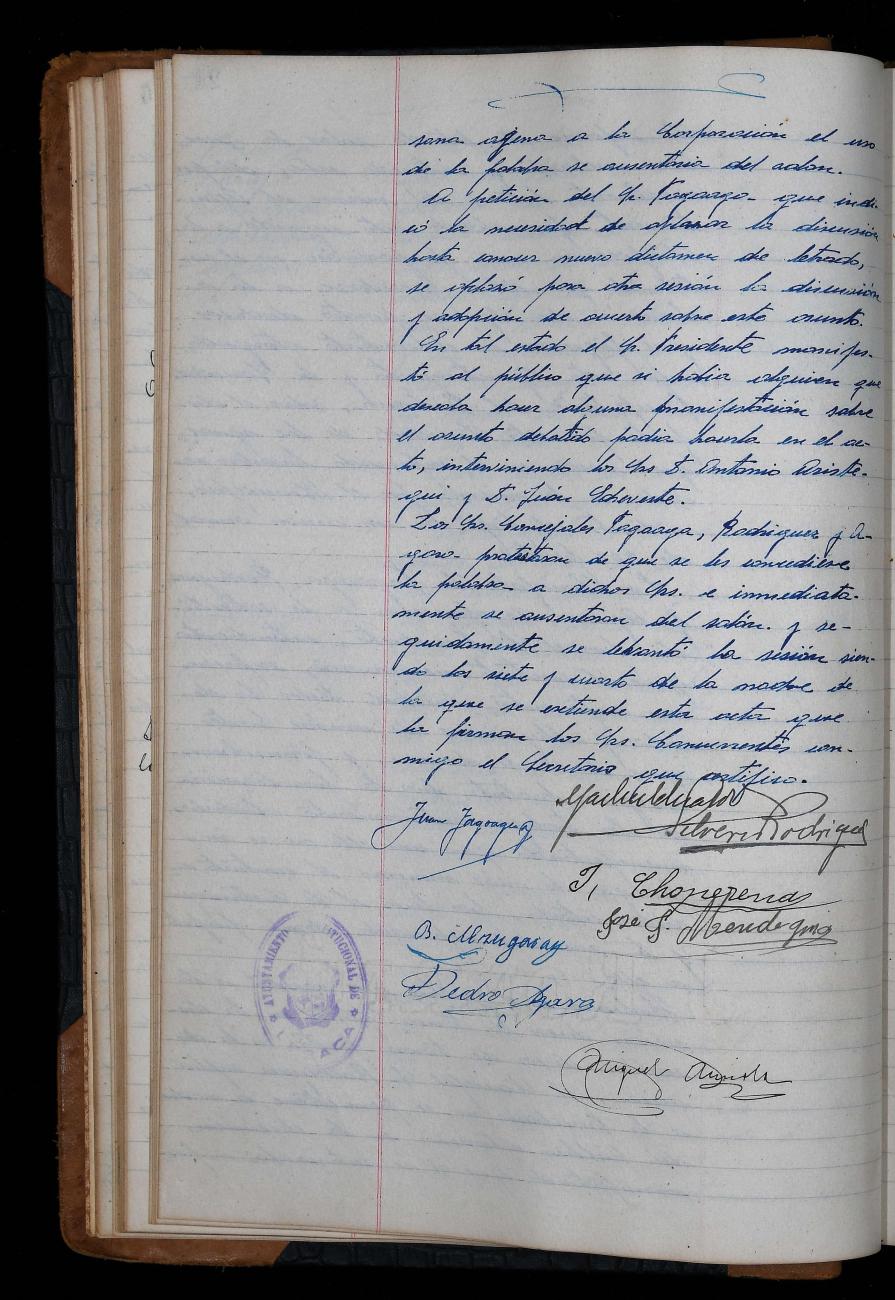 sona agena a la Corporación el uso
de la palabra se ausentaria del salon.
A petición del Sr. Yagoaga que indi-
có la necesidad de aplazar la discusión
hasta conocer nuevo dictamen de letrado,
se aplazó para otra sesión la discusión
y adopción de acuerdo sobre este asunto.
En tal estado el Sr. Presidente manifes-
tó al público que si habia alguien que
deseaba hacer alguna manifestación sobre
el asunto debatido podia hacerla en el ac-
to, interviniendo los Srs D. Antonio Ariste-
gui y D. Juán Echeveste.
Los Srs. Concejales Yagoaga, Rodriguez y A-
gara protestaron de que se les concediese
la palabra a dichos Srs. e inmediata-
mente se ausentaron del salón. y se-
guidamente se levantó la sesión sien-
do las siete y cuarto de la noche de
la que se extiende esta acta que
la firman los Srs. Concurrentes con-
migo el Secretario que certifico.
Juan Yagoaga
Silverio Rodriguez
I, Chongerena
José
B.
Pedro Agara
Miguel
AYUNTAMIENTO CONSTITUCIONAL DE